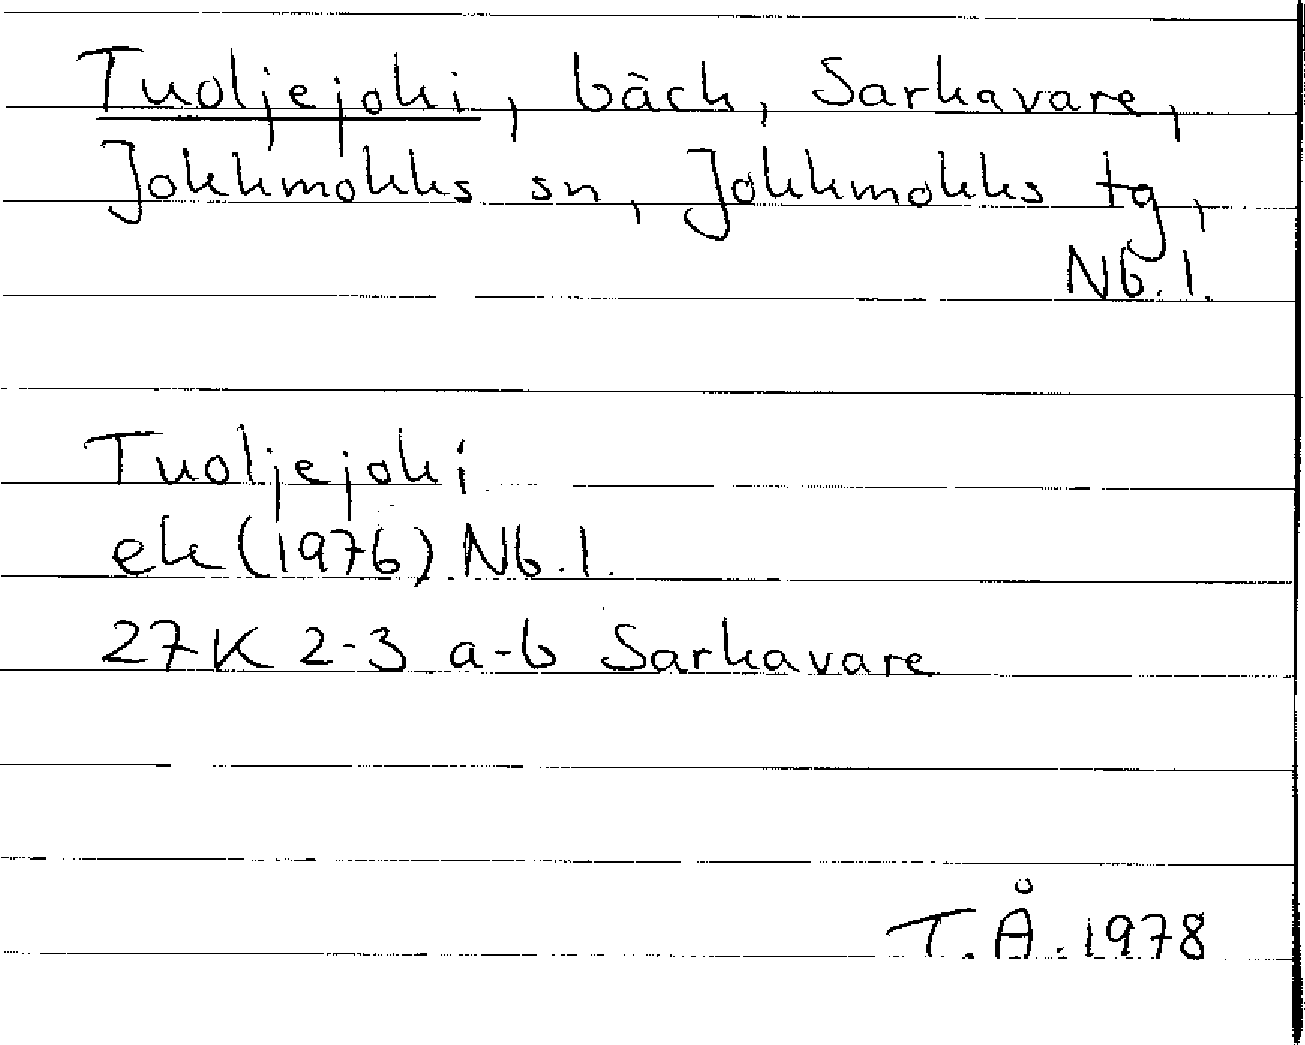 Tuoljejoki, bäck, Sarkavare,
Jokkmokks sn, Jokkmokks tg,
Nb. l.
Tuoljejoki
ek (1976) Nb. l.
27K 2-3 a-b Sarkavare
T. Å. 1978